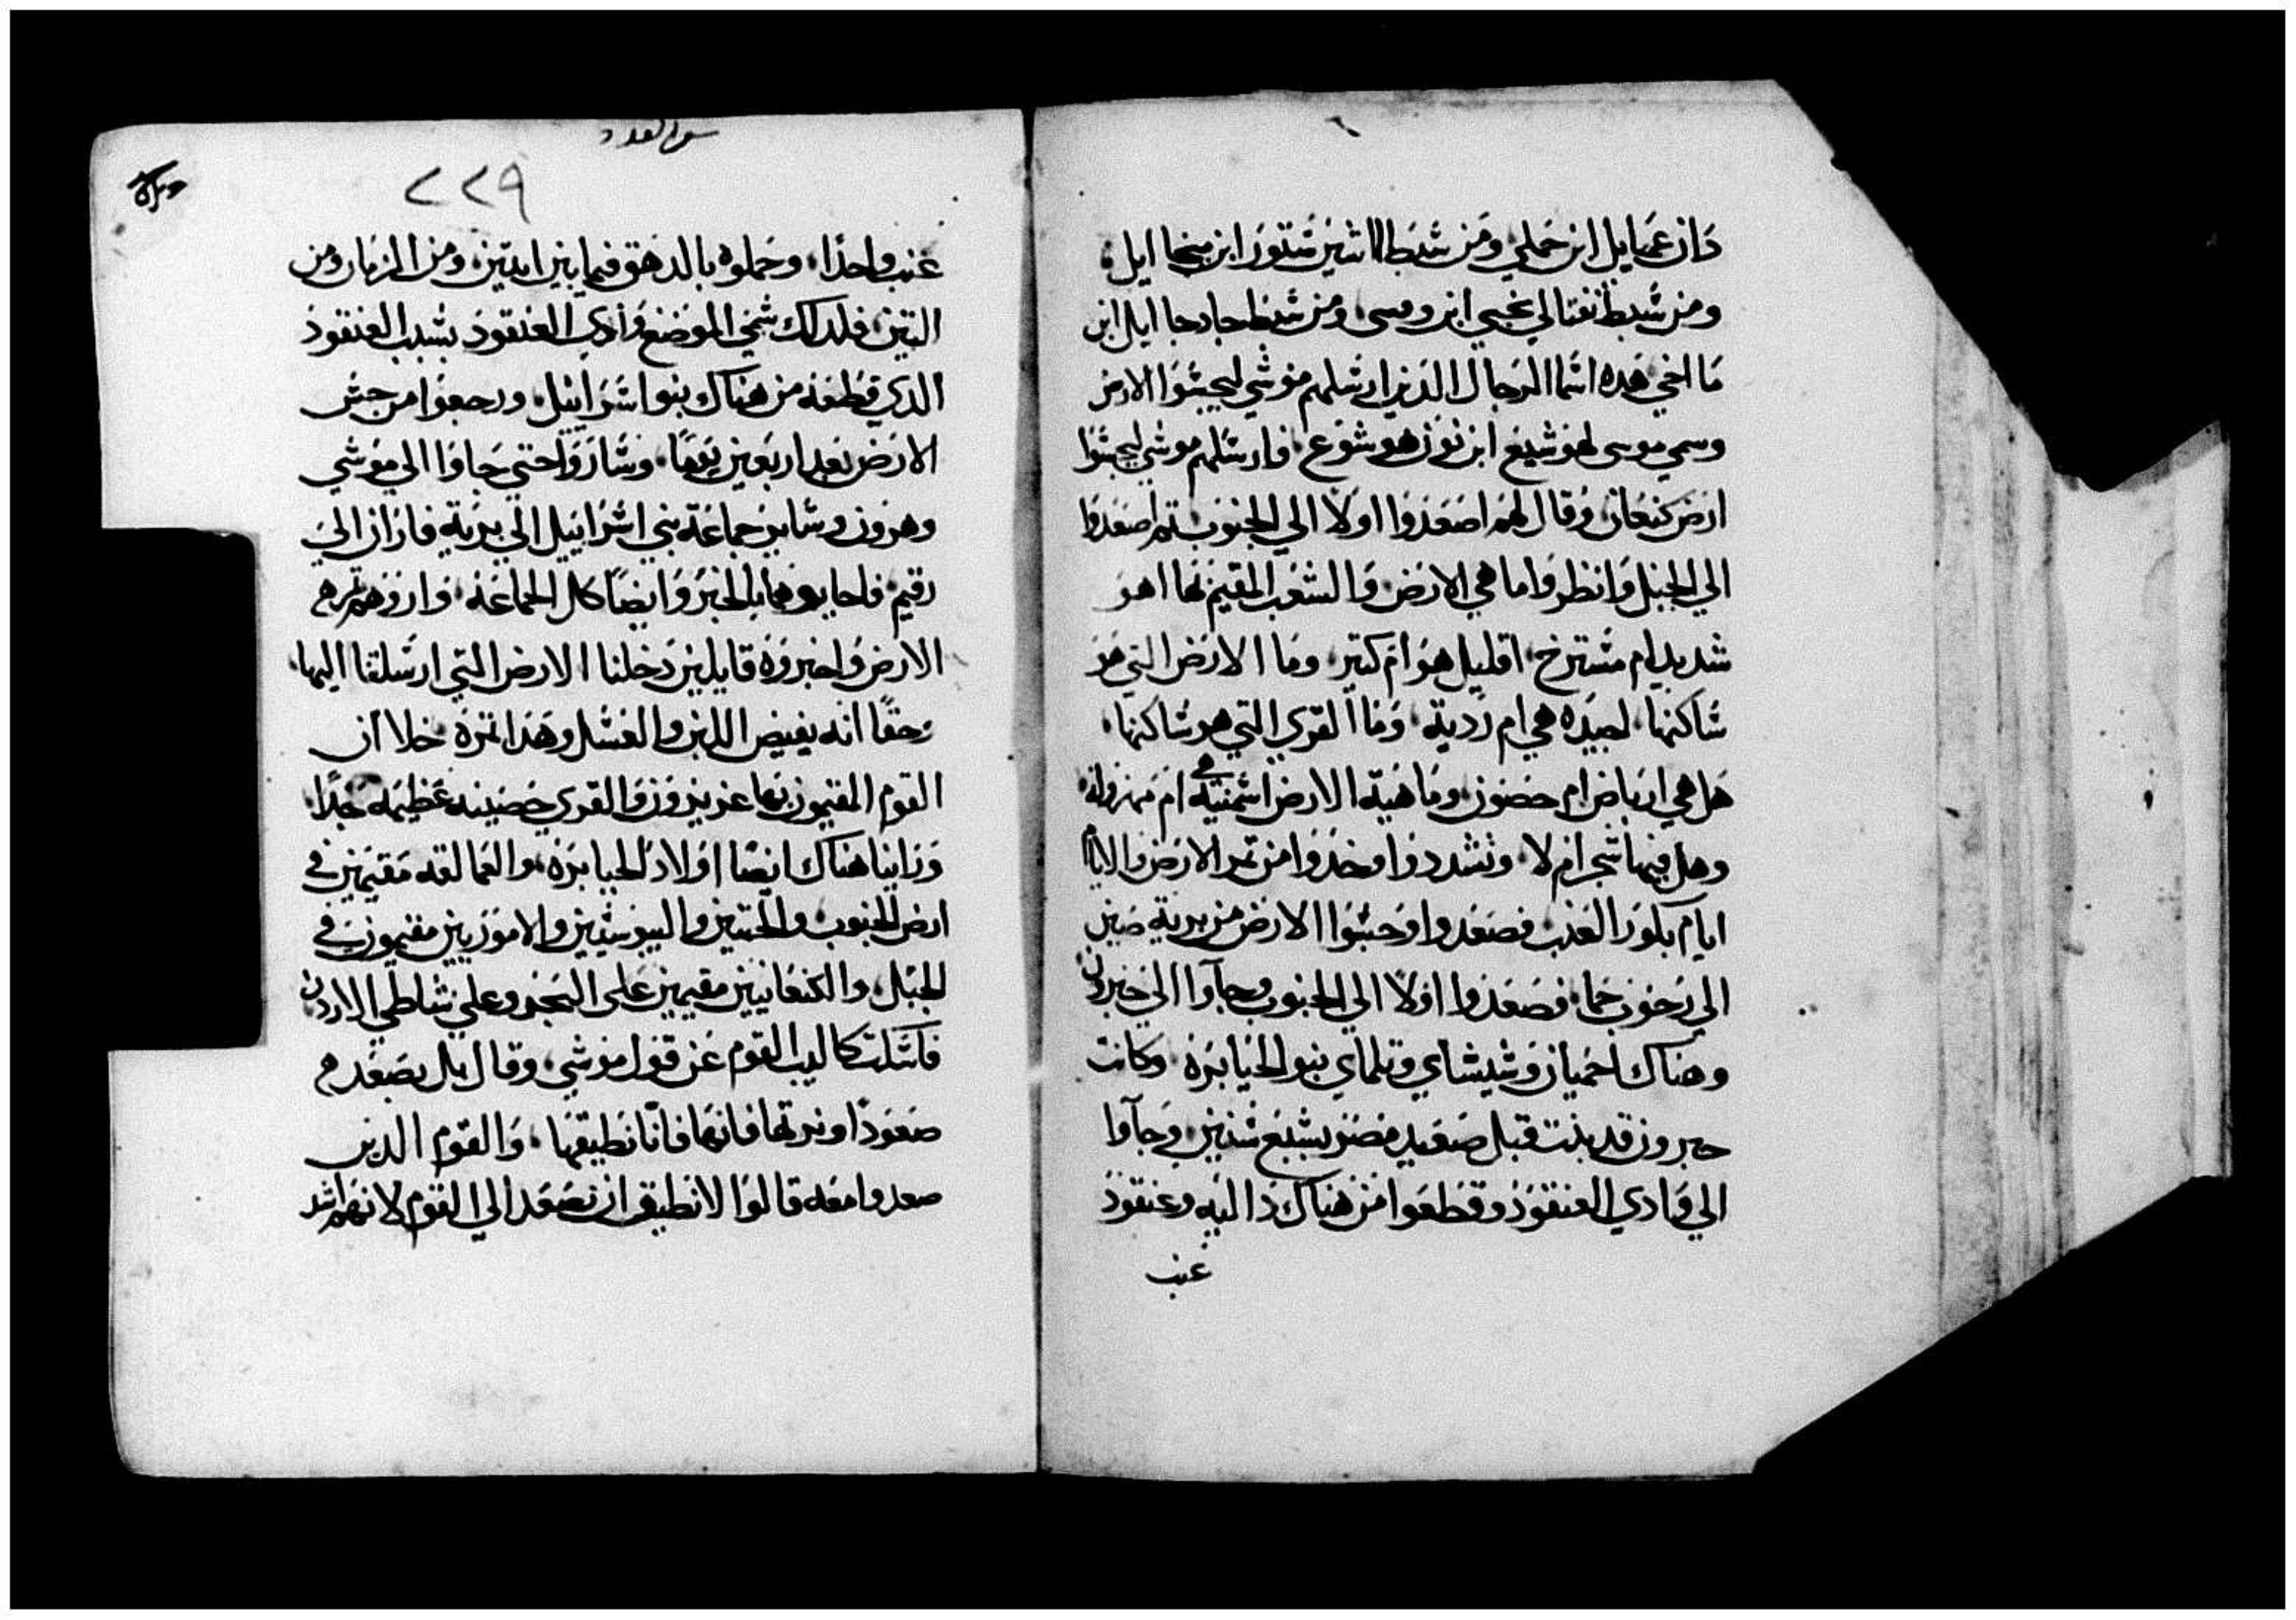 دان عمايل ابن حملي ومن شبط الاشير شتور ابن ميخاايل
ومن شبط نفتالي نحبي ابن وفسى ومن شبط جاد جاايل ابن
ماخي هده اسما الرجال الدين ارسلهم موسي ليجسوا الارض
وسمي موسى لهوشيع ابن نون هوشوع فارسلهم موسي ليجسوا
ارض كنعان وقال لهم اصعدوا اولا الي الجنوب تم اصعدوا
الي الجبل وانظروا ما هي الارض والشعب المقيم بها اهو
شديد ام مسترخ اقليل هو ام كتير وما الارض التي هو
ساكنها اجيده هي ام ردية وما القري التي هو ساكنها
هل هي ارباض ام حصون وما هية الارض اسمنية هي ام مهزولة
وهل فيها شجر ام لا وتشددوا وخدوا من تمر الارض والايام
ايام بكور العنب فصعدوا وجسوا الارض من برية صين
الي رحوب حما فصعدوا اولا الي الجنوب وجاوا الي حبرون
وهناك احميان وشيشاي وتلماي بنو الجبابرة وكانت
حبرون قد بنت قبل صعيد مصر بسبع سنين وجاوا
الي وادي العنقود وقطعوا من هناك داليه وعنقود
عنب
سفر العدد
٢٢٩
عنب واحدا وحملوه بالدهق فيما بين اتنين ومن الرمان ومن
التين فلدلك سمي الموضع وادي العنقود بسبب العنقود
الدي قطعه من هناك بنو اسراييل ورجعوا من جس
الارض بعد اربعين يوما وساروا حتي جاوا الي موسي
وهرون وساير جماعة بني اسراييل الي برية فاران الي
رقيم فاجابوهما بالخبر وايضا كل الجماعة واروهم تمرة
الارض واخبروه قايلين دخلنا الارض التي ارسلتنا اليها
وحقا انه يفيض اللبن والعسل وهدا تمره خلا ان
القوم المقيمون بها عزيزون والقري حصينه عظيمه جدا
وراينا هناك ايضا اولاد الجبابرة والعمالقه مقيمين في
ارض الجنوب والحتيين واليبوسيين والاموريين مقيمون في
الجبل والكنعانيين مقيمين علي البحر وعلي شاطي الاردن
فاسكت كاليب القوم عن قول موسي وقال بل نصعد
صعودا ونرتها فاننا نطيقها والقوم الدين
صعدوا معه قالوا لا نطيق ان نصعد الي القوم لانهم اشد